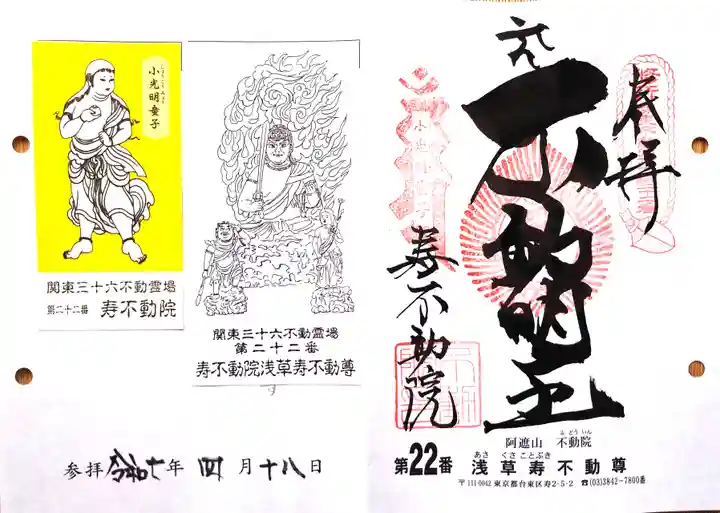 小光明童子
関東三十六不動霊場
第二十二番 寿不動院
関東三十六不動霊場
第二十二番
寿不動院浅草寿不動尊
参拝 令和七年 四月十八日
奉拝
不動明王
寿不動院
小光明童子
阿遮山 不動院
ふどういん
あさくさことぶき
第22番 浅草寿不動尊
〒111-0042 東京都台東区寿2-5-2 ☎(03)3842-7800番